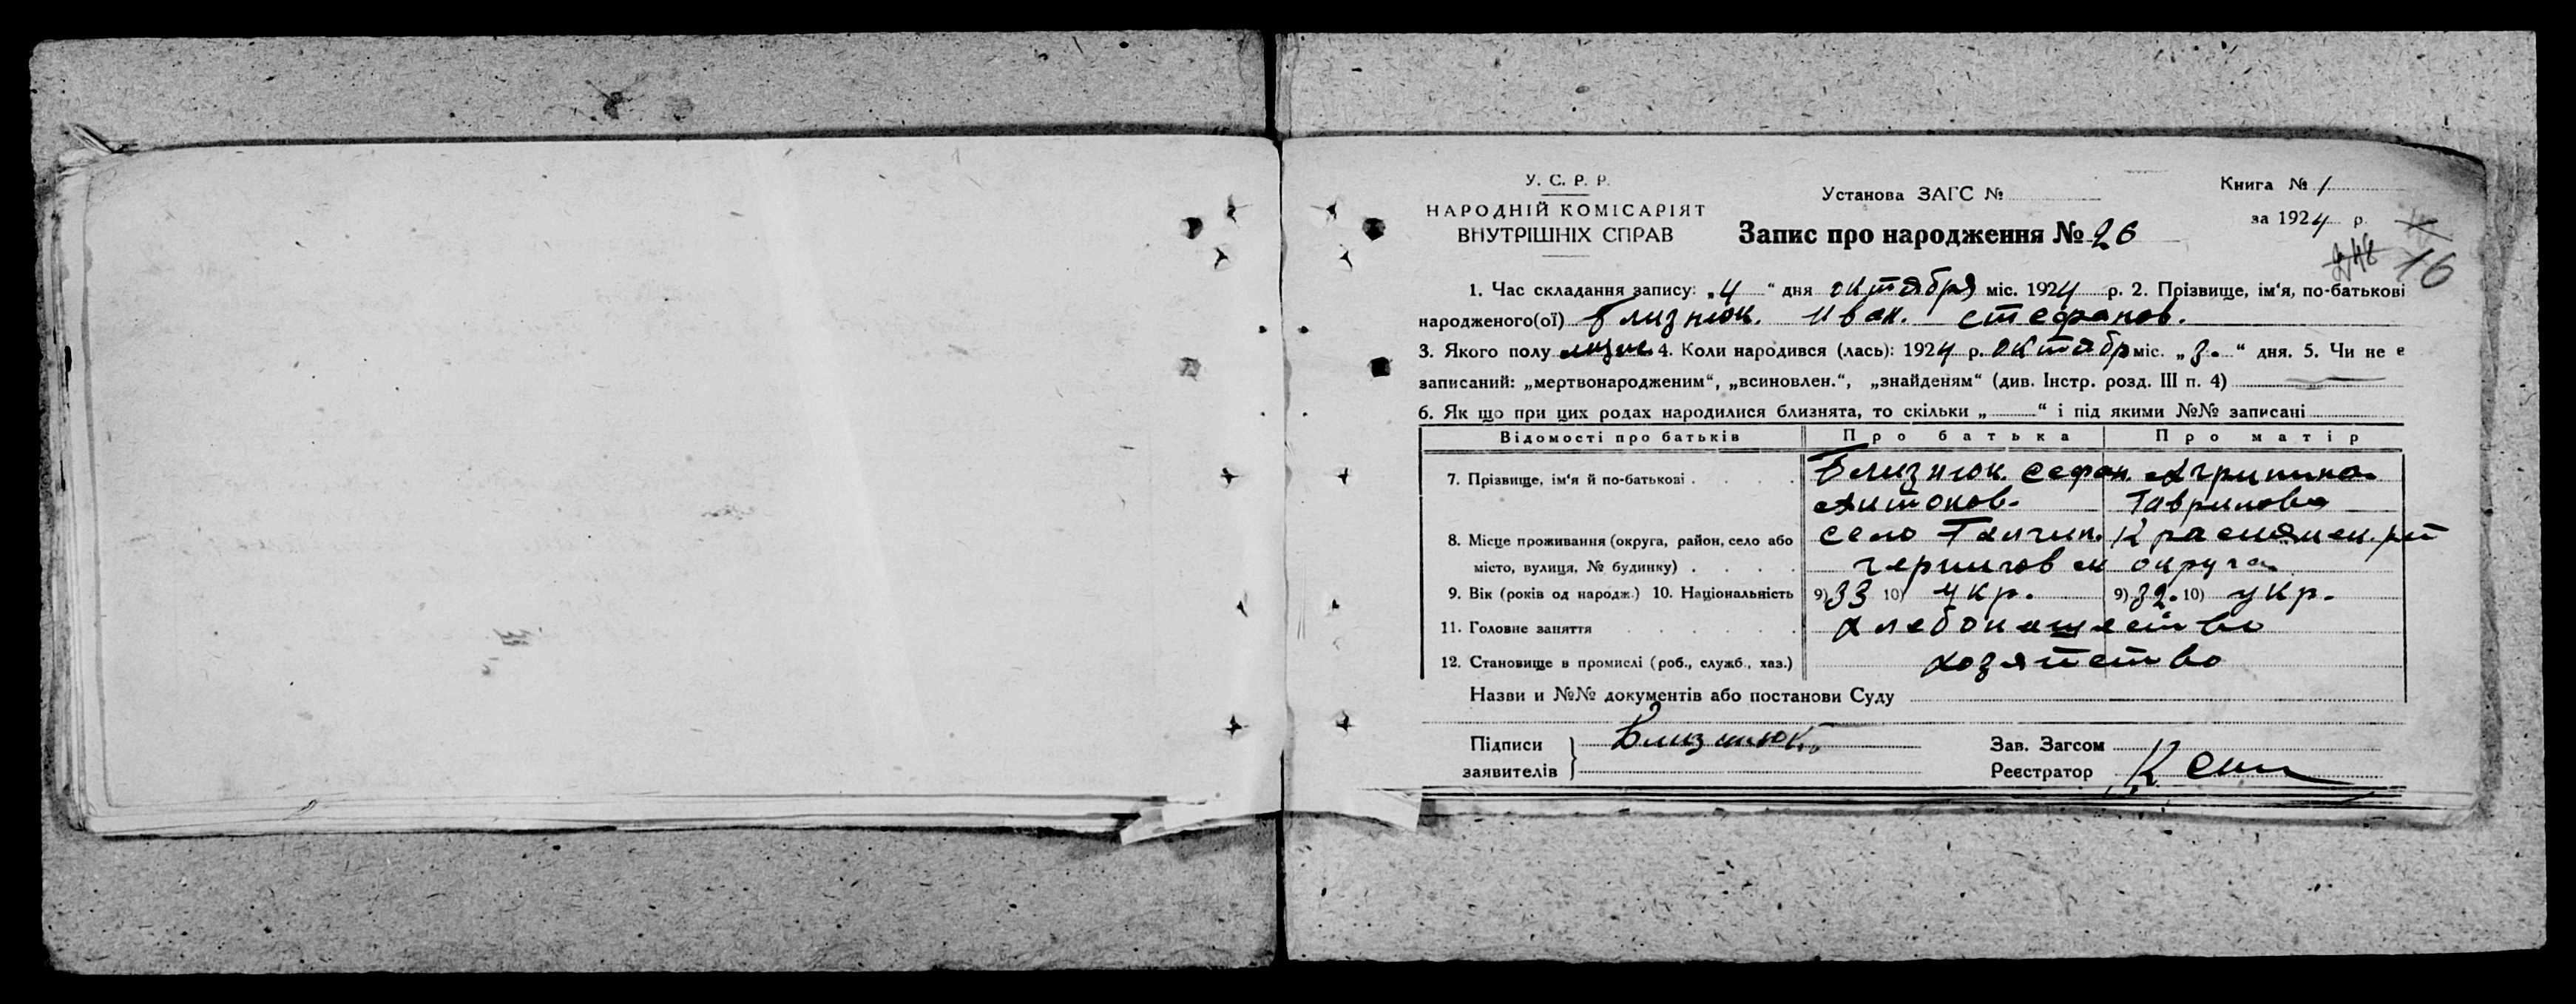 У. С. Р. Р.
НАРОДНІЙ КОМІСАРІЯТ
ВНУТРІШНІХ СПРАВ
Установа ЗАГС №
Запис про народження № 26
Книга № 1
за 1924 р.
16
1. Час складання запису: „4“ дня октября міс. 1924 р. 2. Прізвище, ім'я, по-батькові
народженого(ої) Близнюк. Иван. Стефанов.
3. Якого полу 4. Коли народився (лась): 1924 р. октябр міс. „3.“ дня. 5. Чи не є
записаний: „мертвонародженим“, „всиновлен.“, „знайденям“ (див. Інстр. розд. III п. 4)
6. Як що при цих родах народилися близнята, то скільки „ “ і під якими №№ записані
Відомості про батьків Про батька Про матір
7. Прізвище, ім'я й по-батькові . . . . Близнюк. Сефан. Агрипина
Антонов. Гаврилова
8. Місце проживання (округа, район, село або село
місто, вулиця, № будинку) . . . . округа
9. Вік (років од народж.) 10. Національність 9) 33 10) укр. 9) 32. 10) укр.
11. Головне заняття . . . . . хлебопашество
12. Становище в промислі (роб., служб., хаз.) хозяйство
Назви и №№ документів або постанови Суду
Підписи
заявителів Близнюк
Зав. Загсом
Реєстратор